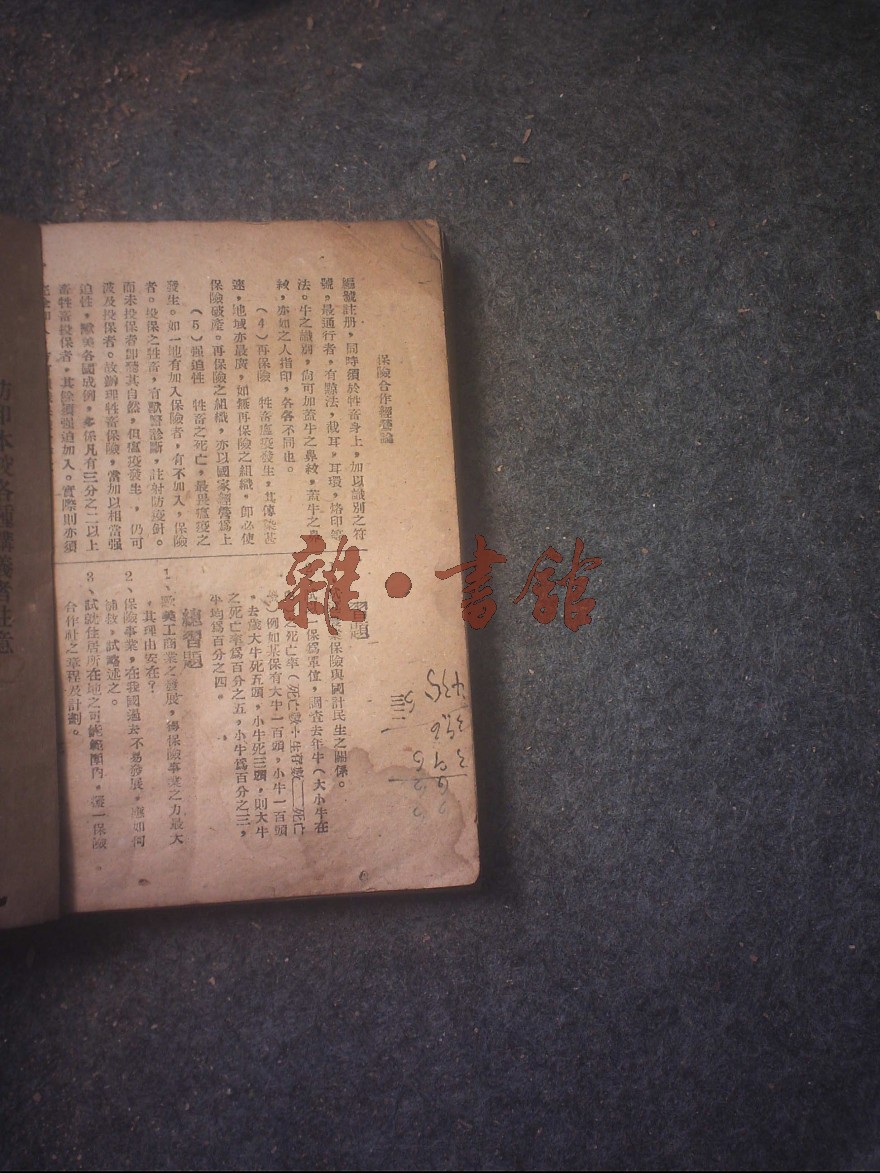 保險合作經營論
編號註册，同時須於牲畜身上，加以識別之符
號，最通行者，有黥法，截耳，耳環，烙印等
法。牛之識別，尙可加蓋牛之鼻紋，蓋牛之鼻
紋，亦如之人指印，各各不同也。
（4）再保險　牲畜瘟疫發生，其傳染甚
速，地域亦最廣，如無再保險之組織，卽必使
保險破產。再保險之組織，亦以國家經營爲上
（5）强迫性　牲畜之死亡，最畏瘟疫之
發生。如一地有加入保險者，有不加入，保險
者。投保之牲畜，有獸醫診斷，註射防疫針。
而未投保者卽聽其自然，但瘟疫發生，仍可
波及投保者。故辦理牲畜保險，當加以相當强
迫性，歐美各國成例，多係凡有三分之二以上
畜牲畜投保者，其餘須强迫加入。實際則亦須
習題
保險與國計民生之關係。
一保爲單位，調查去年牛（大小牛在
之死亡率（死亡
例如某保有大中一百頭，小牛一百頭
，去歲大牛死五頭，小牛死三頭，則大牛
之死亡率爲百分之五，小牛爲百分之三，
平均爲百分之四。
總習題
1、歐美工商業之發展，得保險事業之力最大
，其理由安在？
2、保險事業，在我國過去不易發展，應如何
補救，試略述之。
3、試就住居所在地之可能範圍內，
一保險
合作社之章程及計劃。
雜·書館